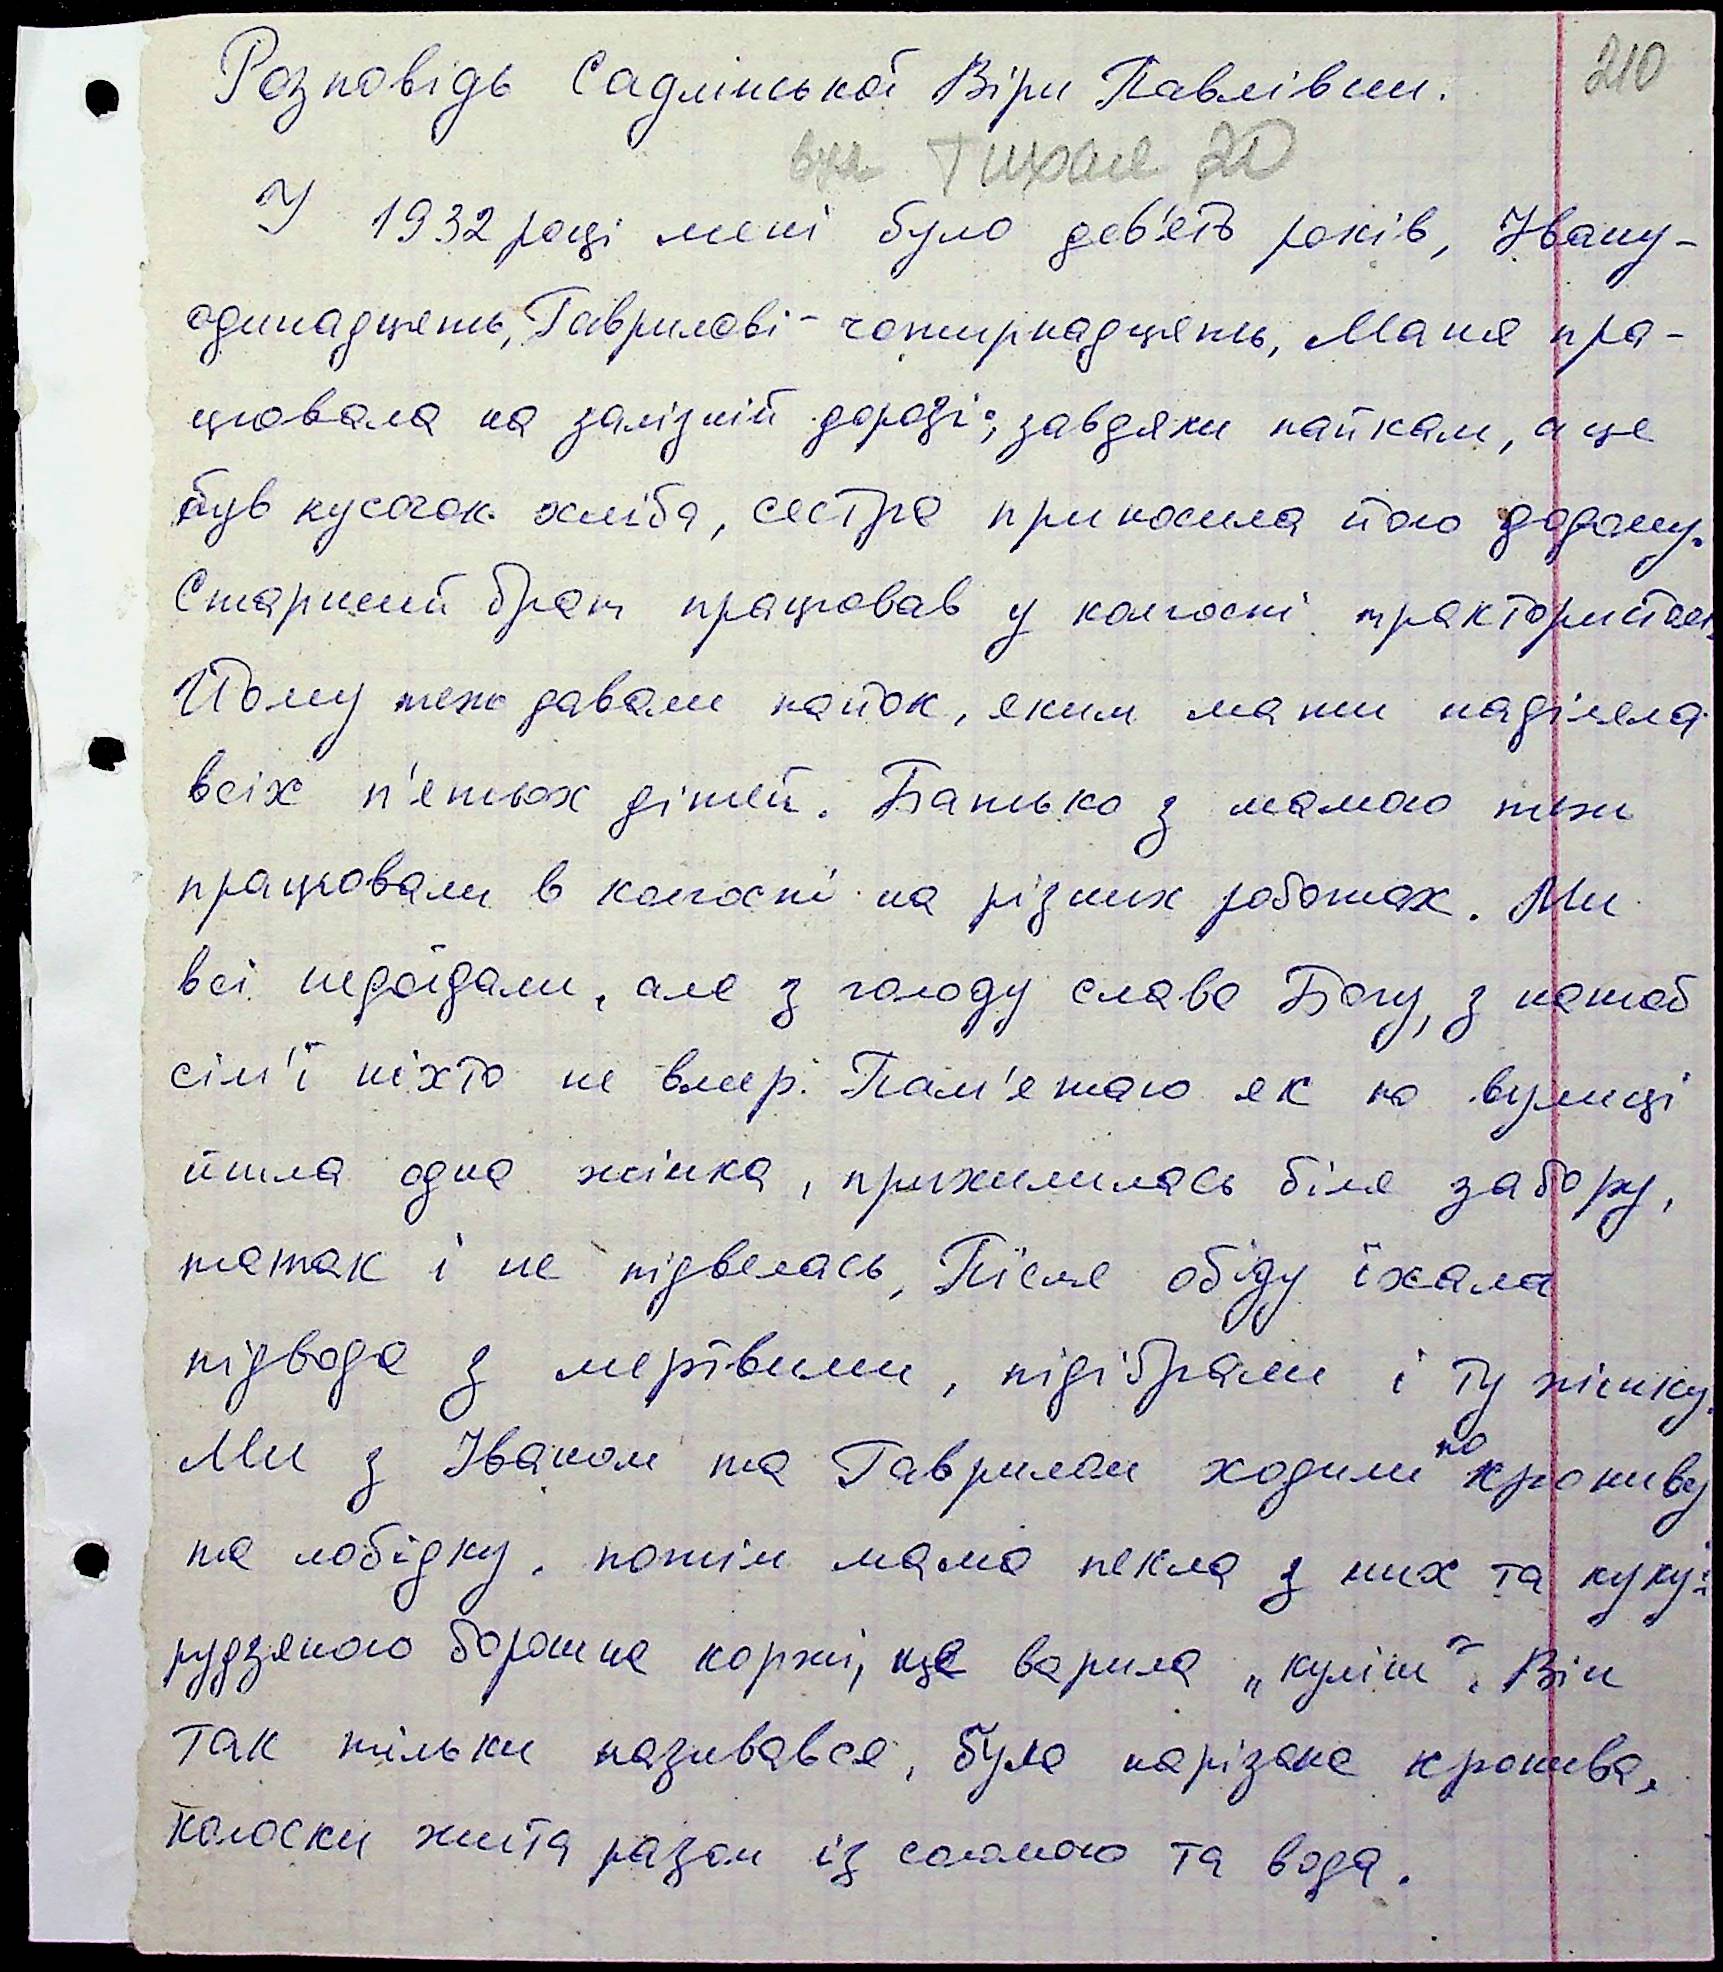 210
Розповідь Садлінської Віри Павлівни.
вул Тихая 20
У 1932 році мені було дев'ять років, Івану -
одинадцять, Гаврилові - чотирнадцять, Маня пра-
цювала на залізній дорозі; завдяки пайкам, а це
був кусочок хліба, сестра приносила його додому.
Старший брат працював у колгоспі трактористом.
Йому теж давали пайок, яким мати наділяла
всіх п'ятьох дітей. Батько з мамою теж
працювали в колгоспі на різних роботах. Ми
всі недоїдали, але з голоду слава Богу, з нашої
сім'ї ніхто не вмер. Пам'ятаю як по вулиці
йшла одна жінка, прихилилась біля забору,
та так і не підвелась, Після обіду їхала
підвода з мертвими, підібрали і ту жінку.
Ми з Іваном та Гаврилом ходили по кропиву
та лобідку, потім мама пекла з них та куку-
рудзяного борошна коржі, ще варила „куліш". Він
так тільки називався, була нарізана кропива,
колоски жита разом із соломою та вода.